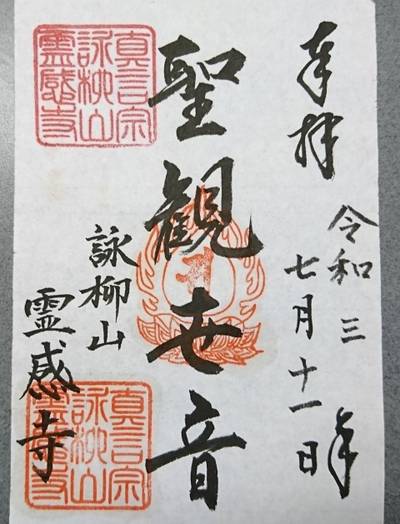 奉拝
令和三年
七月十一日
聖観世音
詠柳山
霊感寺
真言宗
詠柳山
霊感寺
真言宗
詠柳山
霊感寺